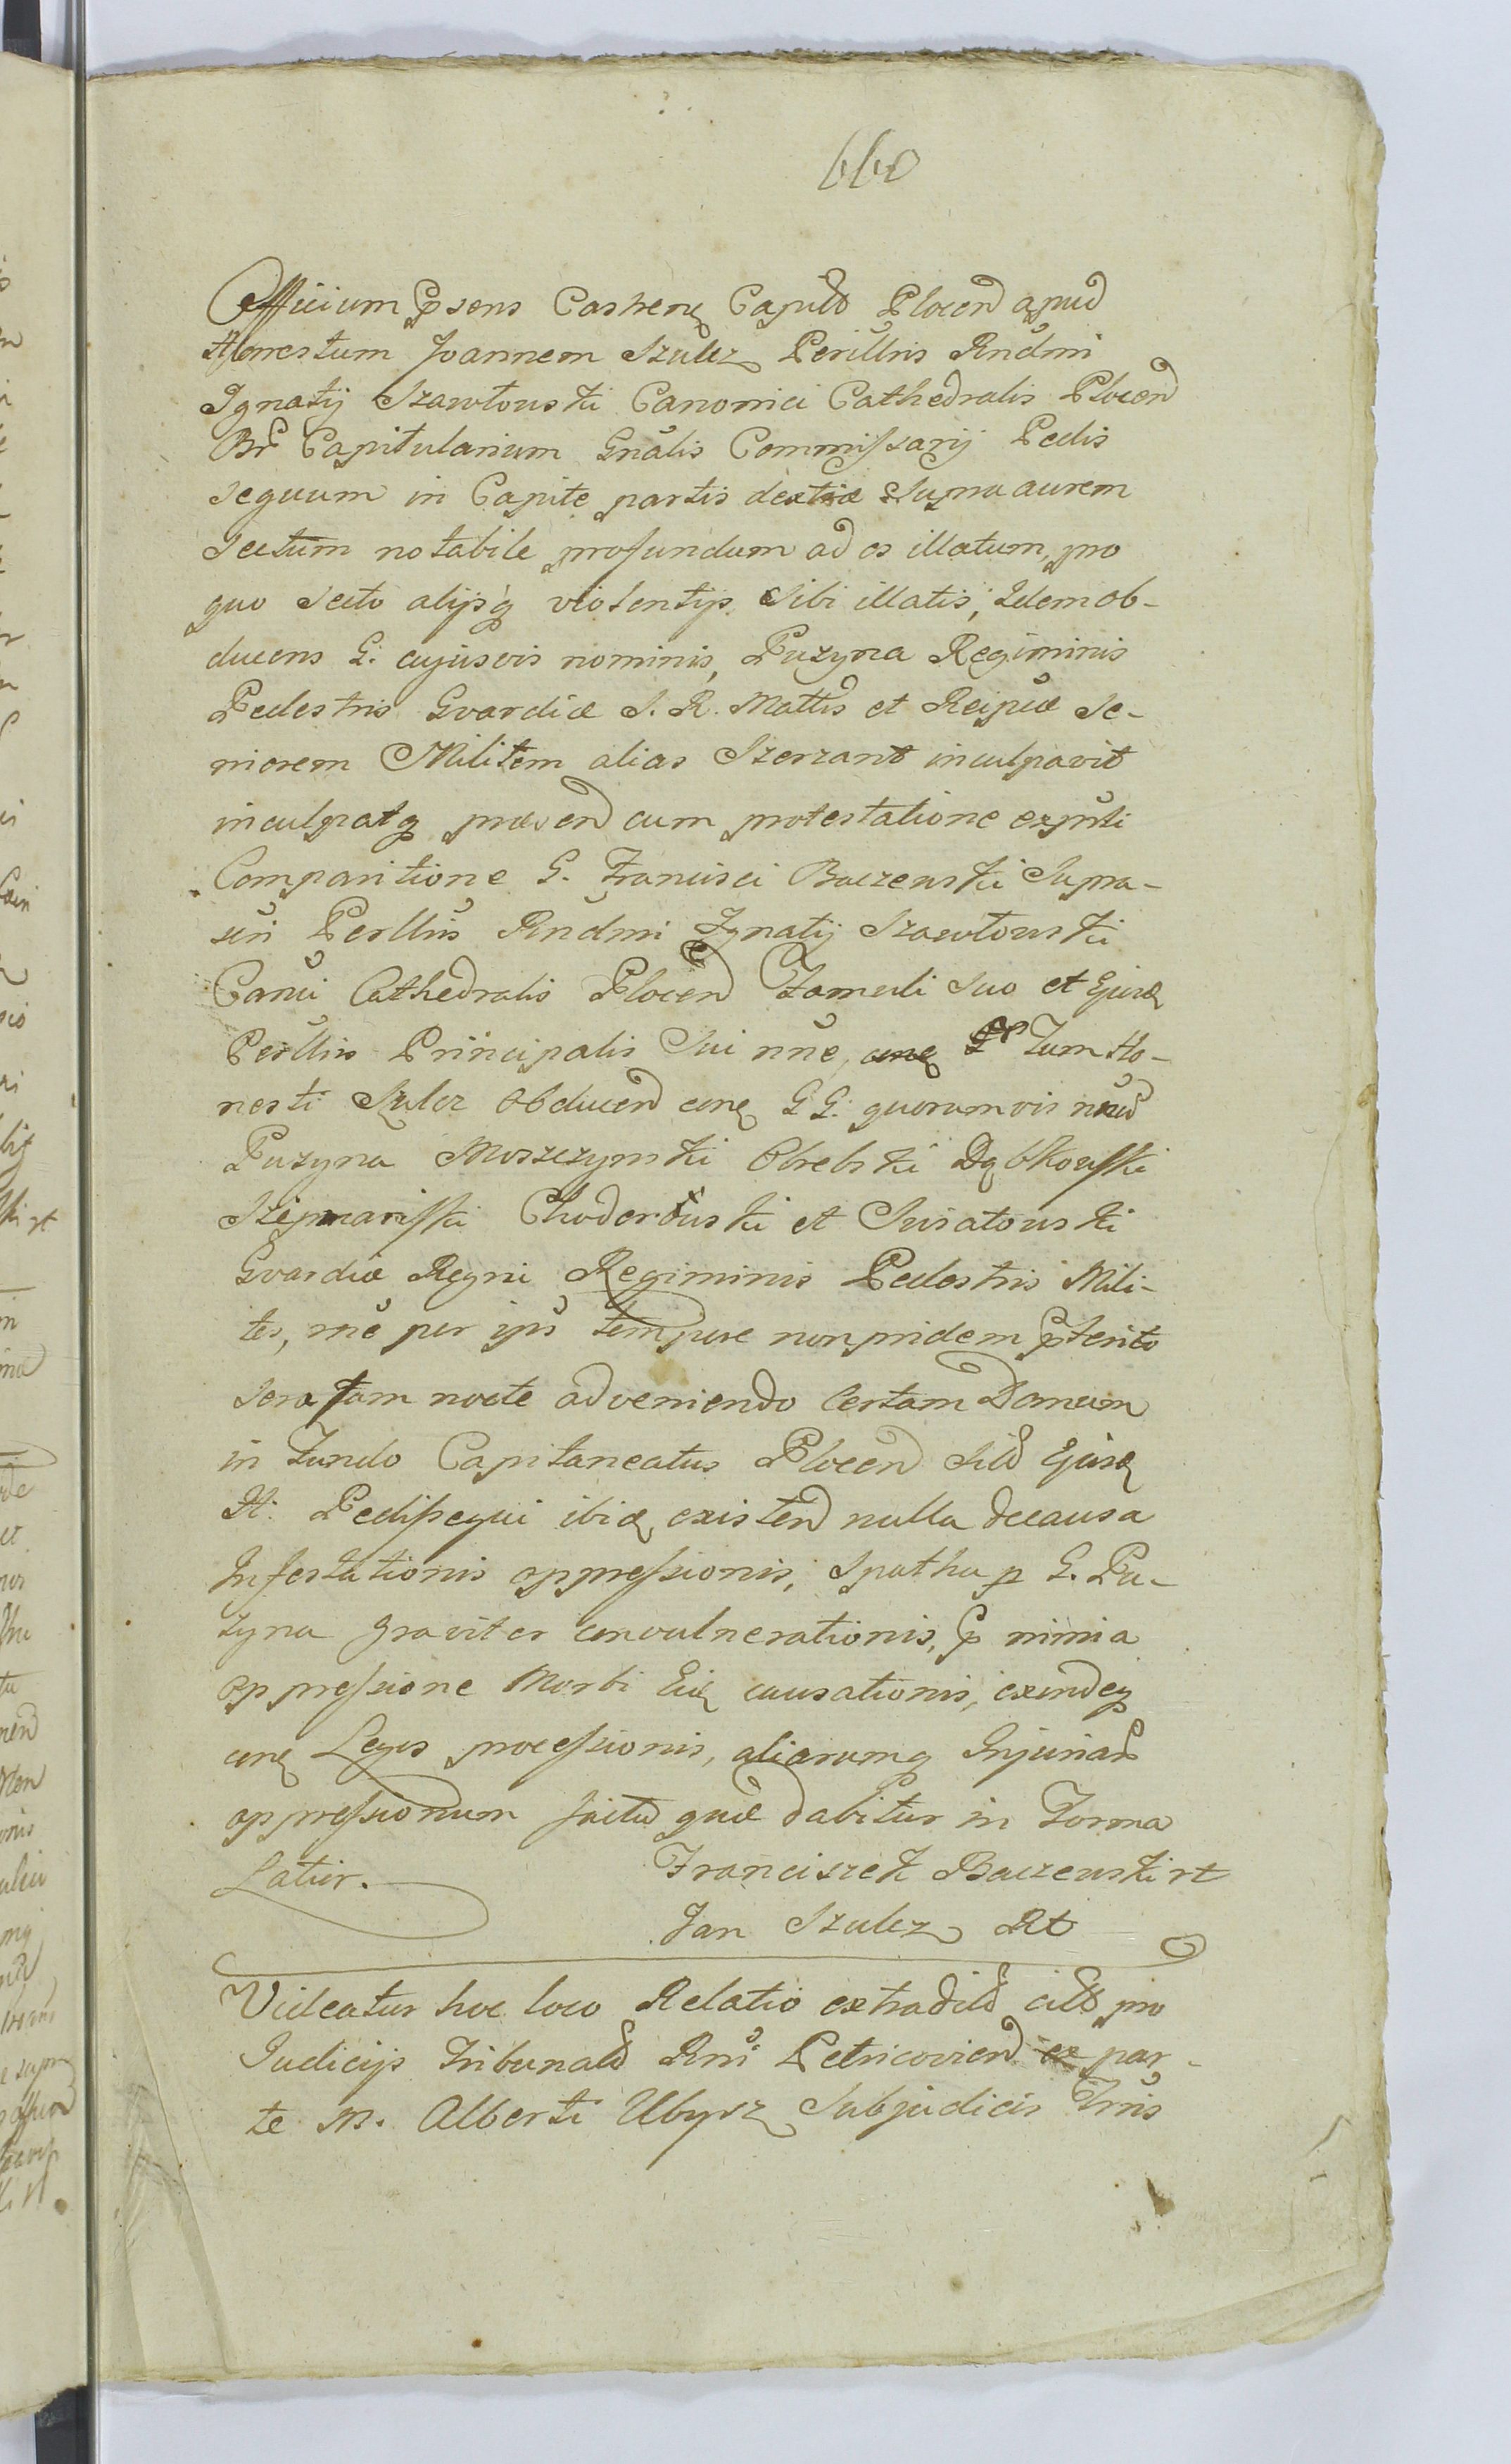 660
Officium Psens Castren Capitle Plocen apud
Honestum Joannem Szulcz Perillris Rndmi
Ignatij Szawłowski Canonici Cathedralis Plocen
Br Capitularium Gnalis Commissarij Pedis
sequum in Capite partis dextræ supra aurem
sectum notabile profundum ad os illatum, pro
quo secto alijsq violentijs sibi illatis, Idem ob-
ducens G. cujusvis nominis, Puzyna Regiminis
Pedestris Gvardiæ S. R. Mattis et Reipcæ Se-
niorem Militem alias Szerzant inculpavit
inculpatq præsen cum protestatione expnti
Comparitione G. Francisci Baczewski Supra-
sui Perllris Rndmi Ignatij Szawłowski
Canci Cathedralis Plocen Famuli suo et Ejusd
Perllris Principalis sui nne, Tum Ho-
nesti Szulcz obducen con GG. quorumvis nnum
Puzyna Moszczynski Obrebski Dąbkowski
Szepmariski Choderowski et Swiatowski
Gvardiæ Regni Regiminis Pedestris Mili-
tes, rne per ips tempore non pridem Pterito
sera jam nocte adveniendo Certam Domum
in Fundo Capitaneatus Plocen sitd Ejusd
H. Pedissequi ibid existen nulla decausa
Infestationis oppressionis, spatha p G. Pu-
zyna graviter convulnerationis, P nimia
oppressione Morbi Eid causationis, exindeq
con Leges processionis, aliarumq Injuriar
oppressionum factu quæ dabitur in Forma
Latior. Franciszek Baczewski rt
Jan Szulcz Rt
Videatur hoc loco Relatio extradit cito pro
Judicijs Tribunald Rni Petricovien ex par-
te M. Alberti Ubysz Subjudicis Trris